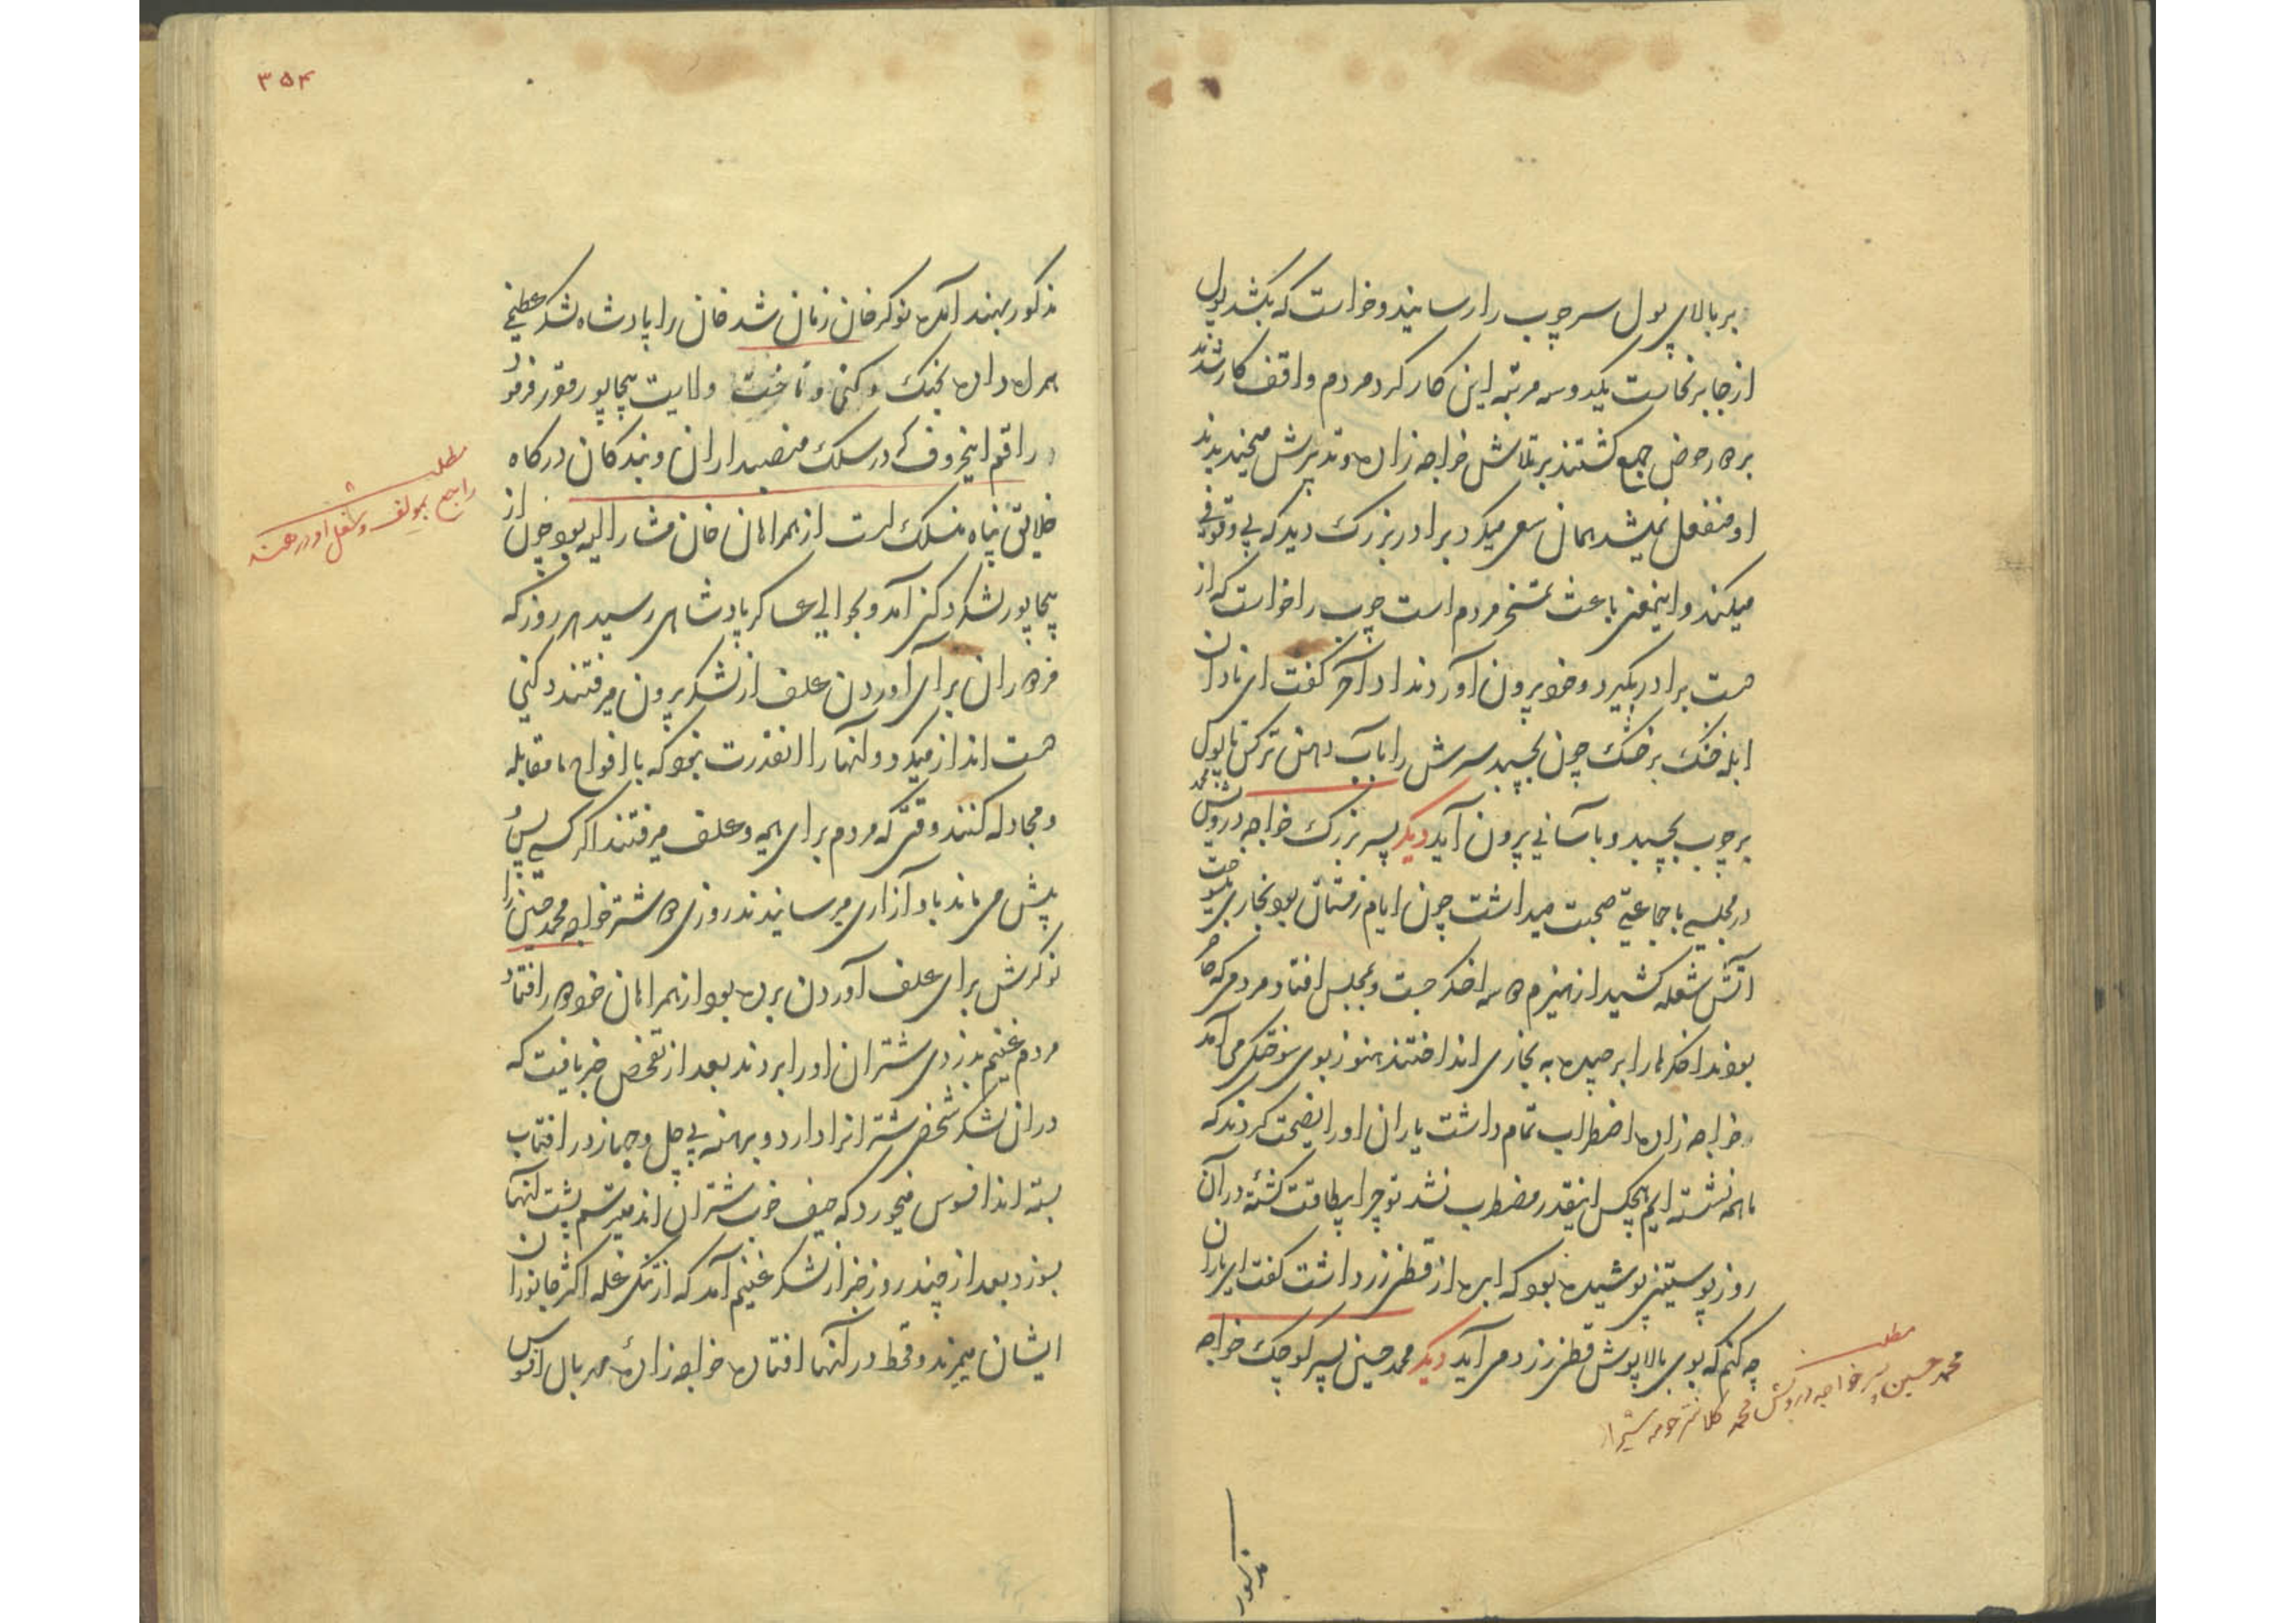 بر بالای پول سر چوب را رسانید و خواست که بکشد پول
از جا برنخاست یکدو سه مرتبه این کار کرد مردم واقف کار شدند
بر در حوض جمع گشتند بر تلاش خواجه زاده و تدبیرش میخندیدند
او منفعل نمیشد همان سعی میکرد برادر بزرگ دید که بی وقوفی
میکند و اینمعنی باعث تمسخر مردم است چوب را خواست که از
دست برادر بگیرد و خود بیرون آورد نداد آخر گفت ای نادان
ابله خشک بر خشک چون بچسبد سرش را بآب دهن تر کن تا پول
بر چوب بچسبد و بآسانی بیرون آید دیگر پسر بزرگ خواجه درویش محمد
در مجلسی با جماعتی صحبت میداشت چون ایام زمستان بود بخاری
آتش شعله کشید از هیزم دو سه اخگر جست و بمجلس افتاد مردمی که حاضر
بودند اخگرها را برچیده به بخاری انداختند هنوز بوی سوختگی می آمد
خواجه زاده اضطراب تمام داشت یاران او را نصیحت کردند که
ما همه نشسته ایم هیچکس اینقدر مضطرب نشد تو چرا بیطاقت گشتهٔ در آن
روز پوستینی پوشیده بود که ابره از قطنی زرد داشت گفت ای یاران
چه کنم که بوی بالاپوش قطنی زرد می آید دیگر محمد حسین پسر کوچک خواجه
مطلب
محمد حسین پسر خواجه درویش محمد کلانتر حومه شیراز
مذکور
۳۵۴
مذکور بهند آمده نوکر خان زمان شد خان را پادشاه لشکر عظیمی
همراه داده بجنگ دکنی و تاخت ولایت بیجاپور مقرر فرمود
راقم اینحروف که در سلک منصبداران و بندگان درگاه
خلایق پناه منسلک است از همراهان خان مشار الیه بود چون از
بیجاپور لشکر دکنی آمد و بحوالی عساکر پادشاهی رسید هر روز که
مردم اردو برای آوردن علف از لشکر بیرون میرفتند دکنی
دست انداز میکرد و آنها را آنقدرت نبود که با افواج ما مقابله
و مجادله کنند وقتی که مردم برای هیمه و علف میرفتند اگر کسی پس و
پیش می ماند باو آزاری میرسانیدند روزی دو شتر خواجه محمد حسین را
نوکرش برای علف آوردن برده بود از همراهان خود دور افتاد
مردم غنیم بدزدی شتران او را بردند بعد از تفحص خبر یافت که
در آن لشکر شخصی شتر آنرا دارد و برهنه بی جل و جهاز در آفتاب
بسته اند افسوس میخورد که حیف خوب شتران اند میترسم پشت آنها
بسوزد بعد از چند روز خبر از لشکر غنیم آمد که از تنگی غله اکثر جانوران
ایشان میمیرند و قحط در آنها افتاده خواجه زاده مهربال افسوس
مطلب
راجع بمولف و شغل او در هند